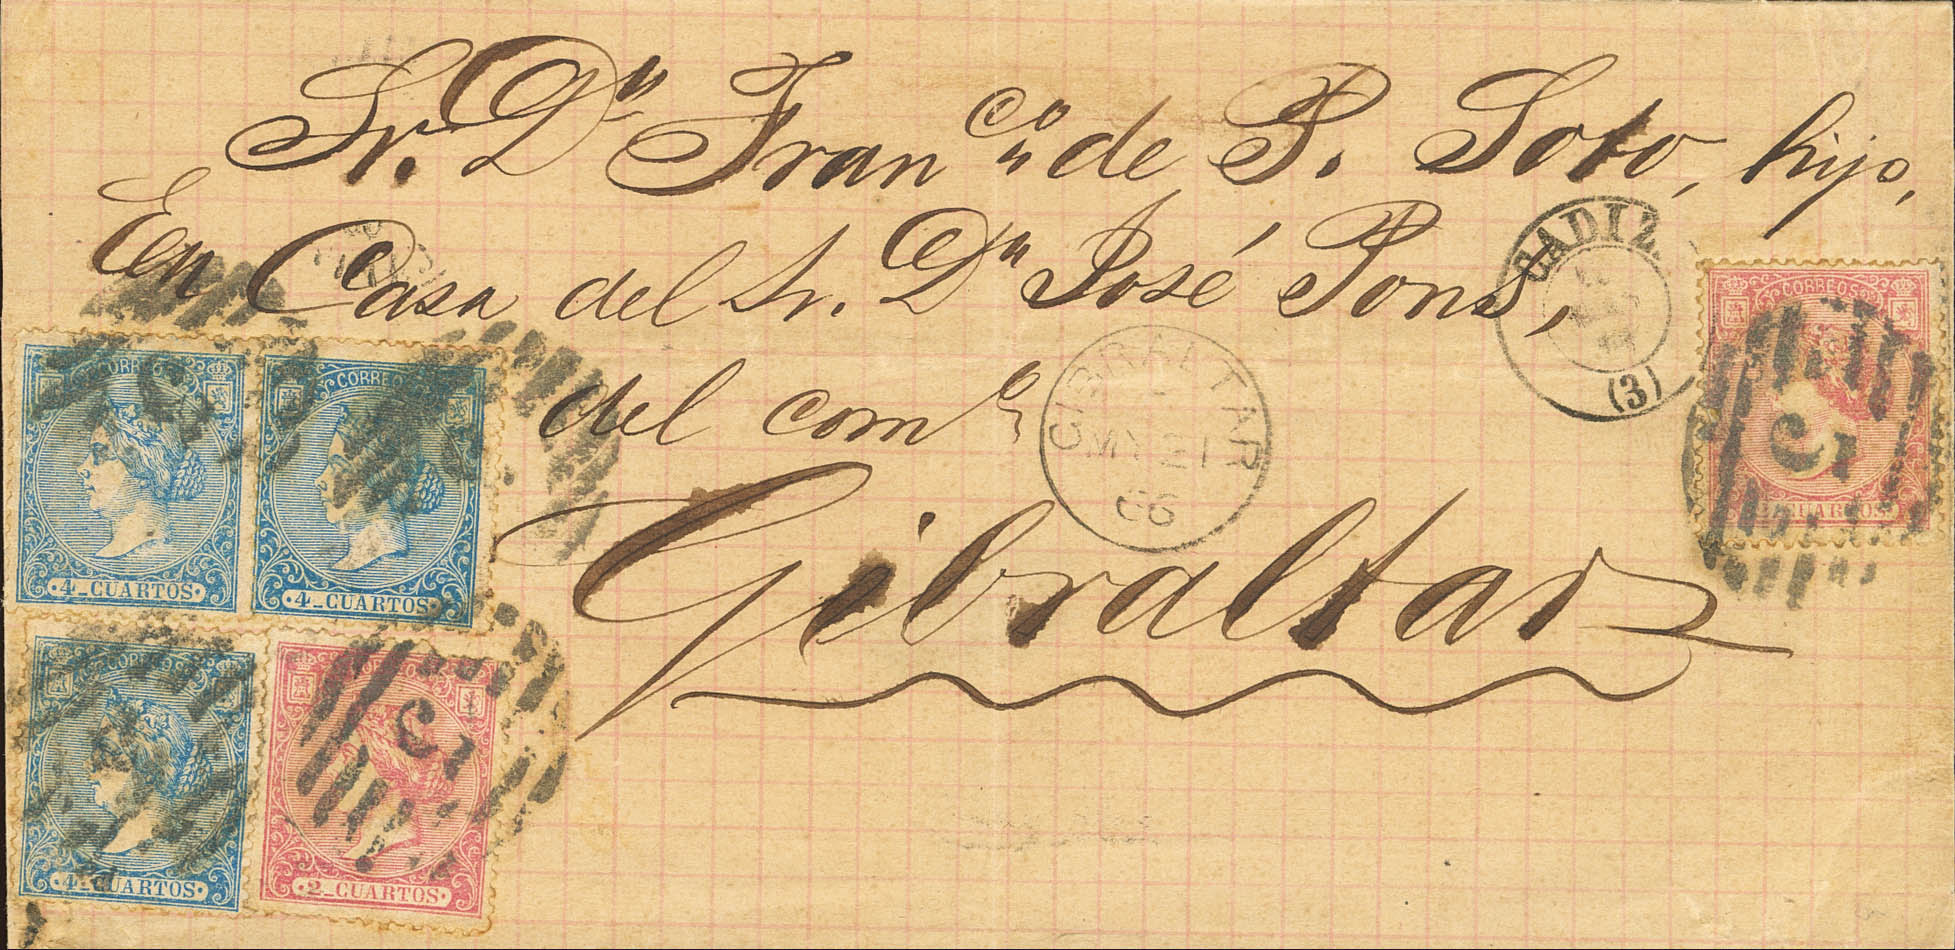 Sr. Dn Franco de P. Soto, hijo,
En Casa del Sr. Dn José Pons,
del come
Gibraltar
CADIZ
(3)
GIBRALTAR
MY 21
66
CORREOS
4_CUARTOS
CORREOS
4_CUARTOS
CORREOS
4_CUARTOS
CORREOS
2_CUARTOS
CORREOS
CUARTOS